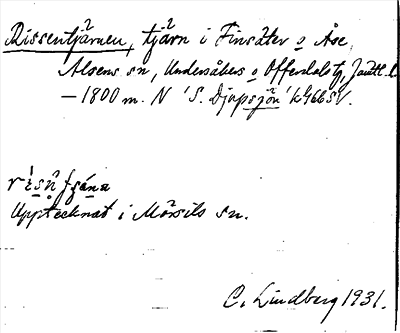 Rissentjärnen, tjärn i Finsäter o Åse,
Alsens sn, Undersåkers o Offerdals tg, Jämtl. l.
– 1800 m. N 'S. Djupsjön' k966SV.
Upptecknat i Mörsils sn.
C. Lindberg 1931.